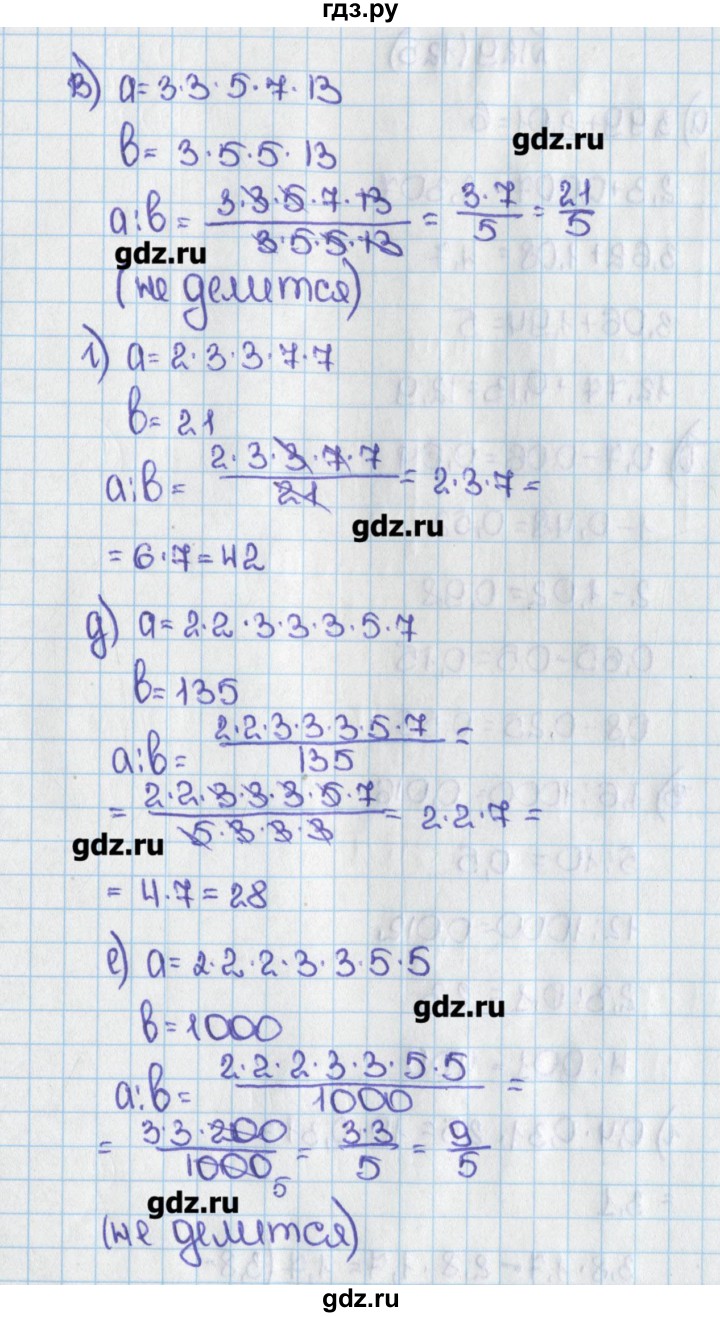 гдз.ру
в) a = 3·3·5·7·13
gdz.ru
b = 3·5·5·13
a:b = 3·3·5·7·13 / 3·5·5·13 = 3·7 / 5 = 21 / 5
gdz.ru
(не делится)
г) a = 2·3·3·7·7
b = 21
a:b = 2·3·3·7·7 / 21 = 2·3·7 =
gdz.ru
= 6·7 = 42
д) a = 2·2·3·3·3·5·7
b = 135
a:b = 2·2·3·3·3·5·7 / 135 =
= 2·2·3·3·3·5·7 / 5·3·3·3 = 2·2·7 =
gdz.ru
= 4·7 = 28
е) a = 2·2·2·3·3·5·5
gdz.ru
b = 1000
a:b = 2·2·2·3·3·5·5 / 1000 =
= 3·3·200 / 1000 5 = 3·3 / 5 = 9 / 5
gdz.ru
(не делится)
gdz.ru